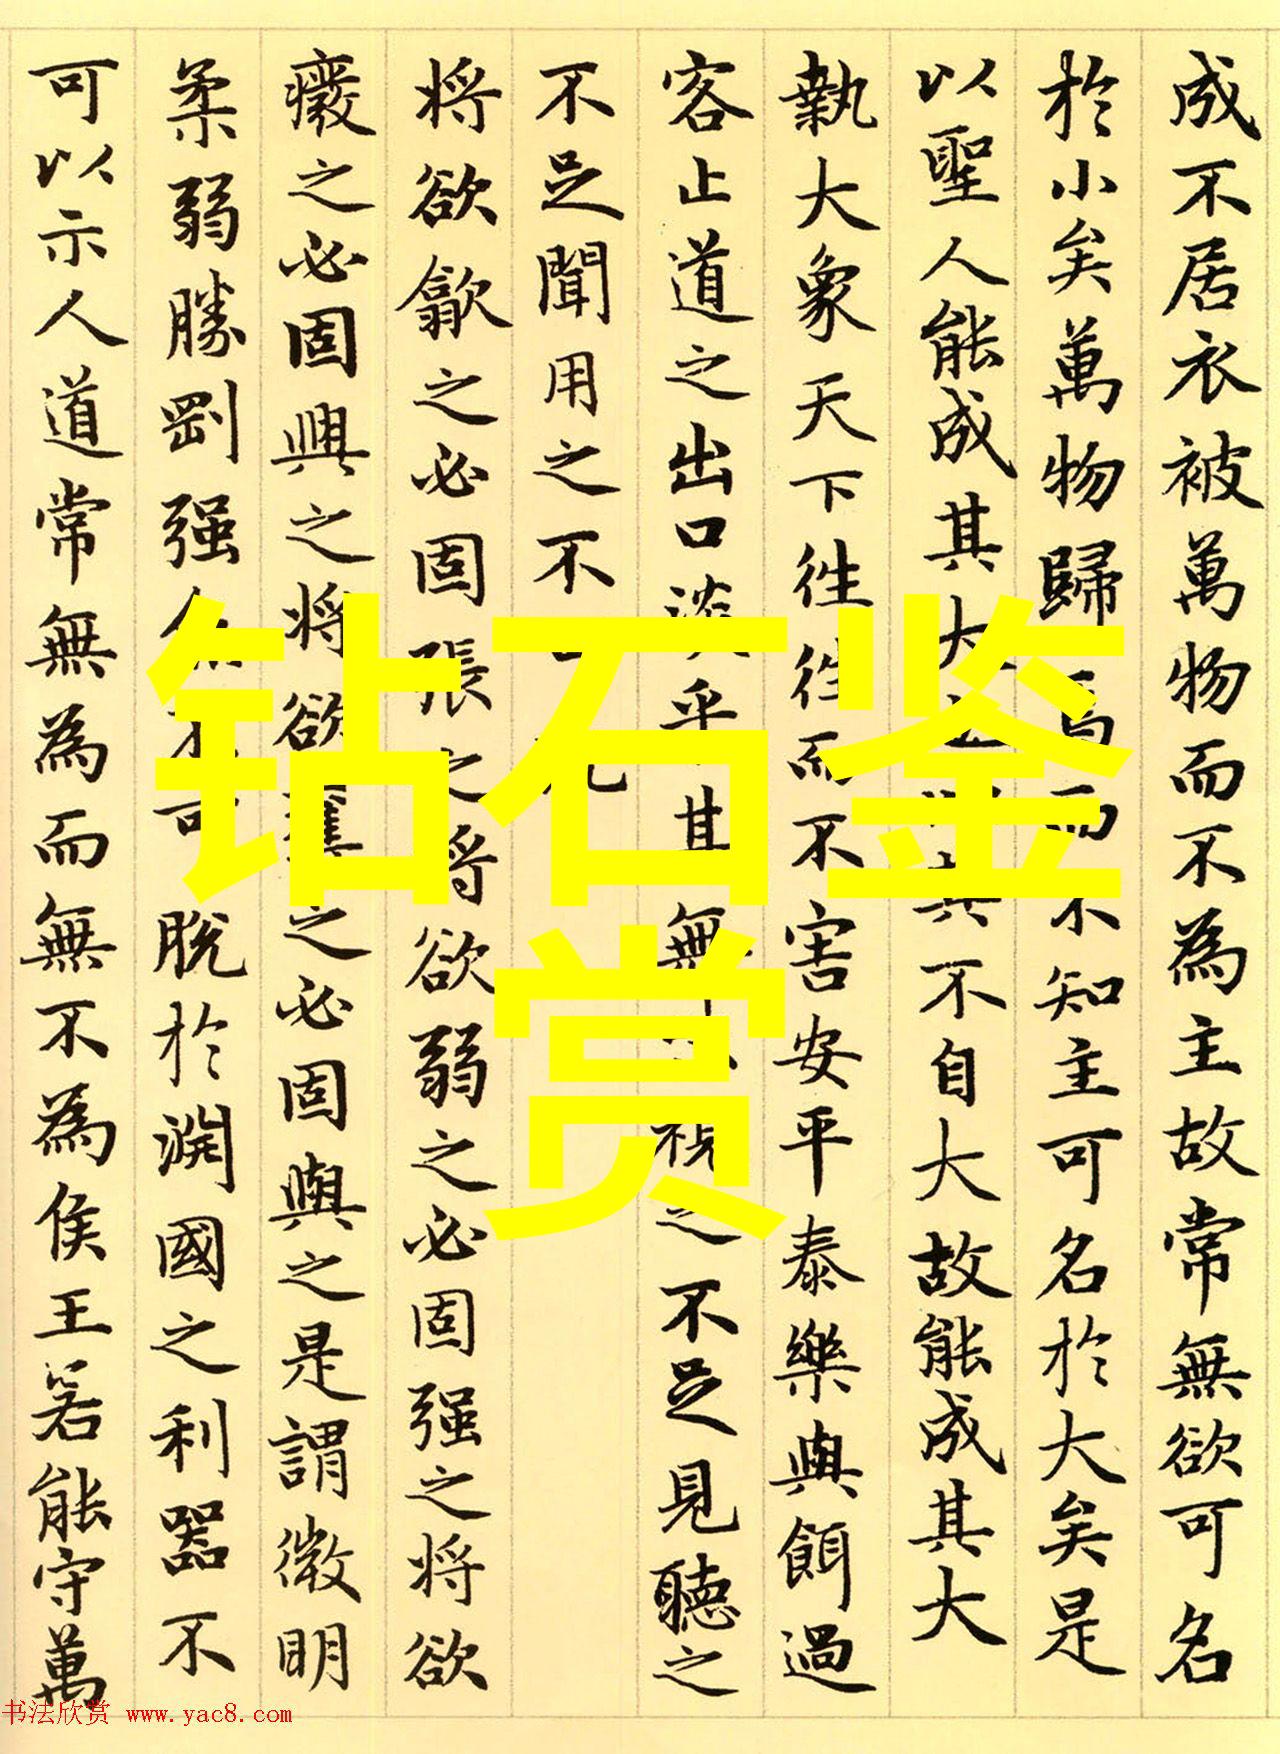 成不居衣被萬物而不為主故常無欲可名
於小矣萬物歸焉而不知主可名於大矣是
以聖人能成其大其不自大故能成其大
執大象天下往往而不害安平泰樂與餌過
客止道之出口淡乎其無視之不足見聽之
不足聞用之不
将欲歙之必固張之将欲弱之必固强之将欲
癈之必固興之将欲奪之必固與之是謂微明
柔弱勝剛强魚不可脫於淵國之利器不
可以示人道常無為而無不為侯王若能守萬
钻石鉴
赏
书法欣赏 www.yac8.com